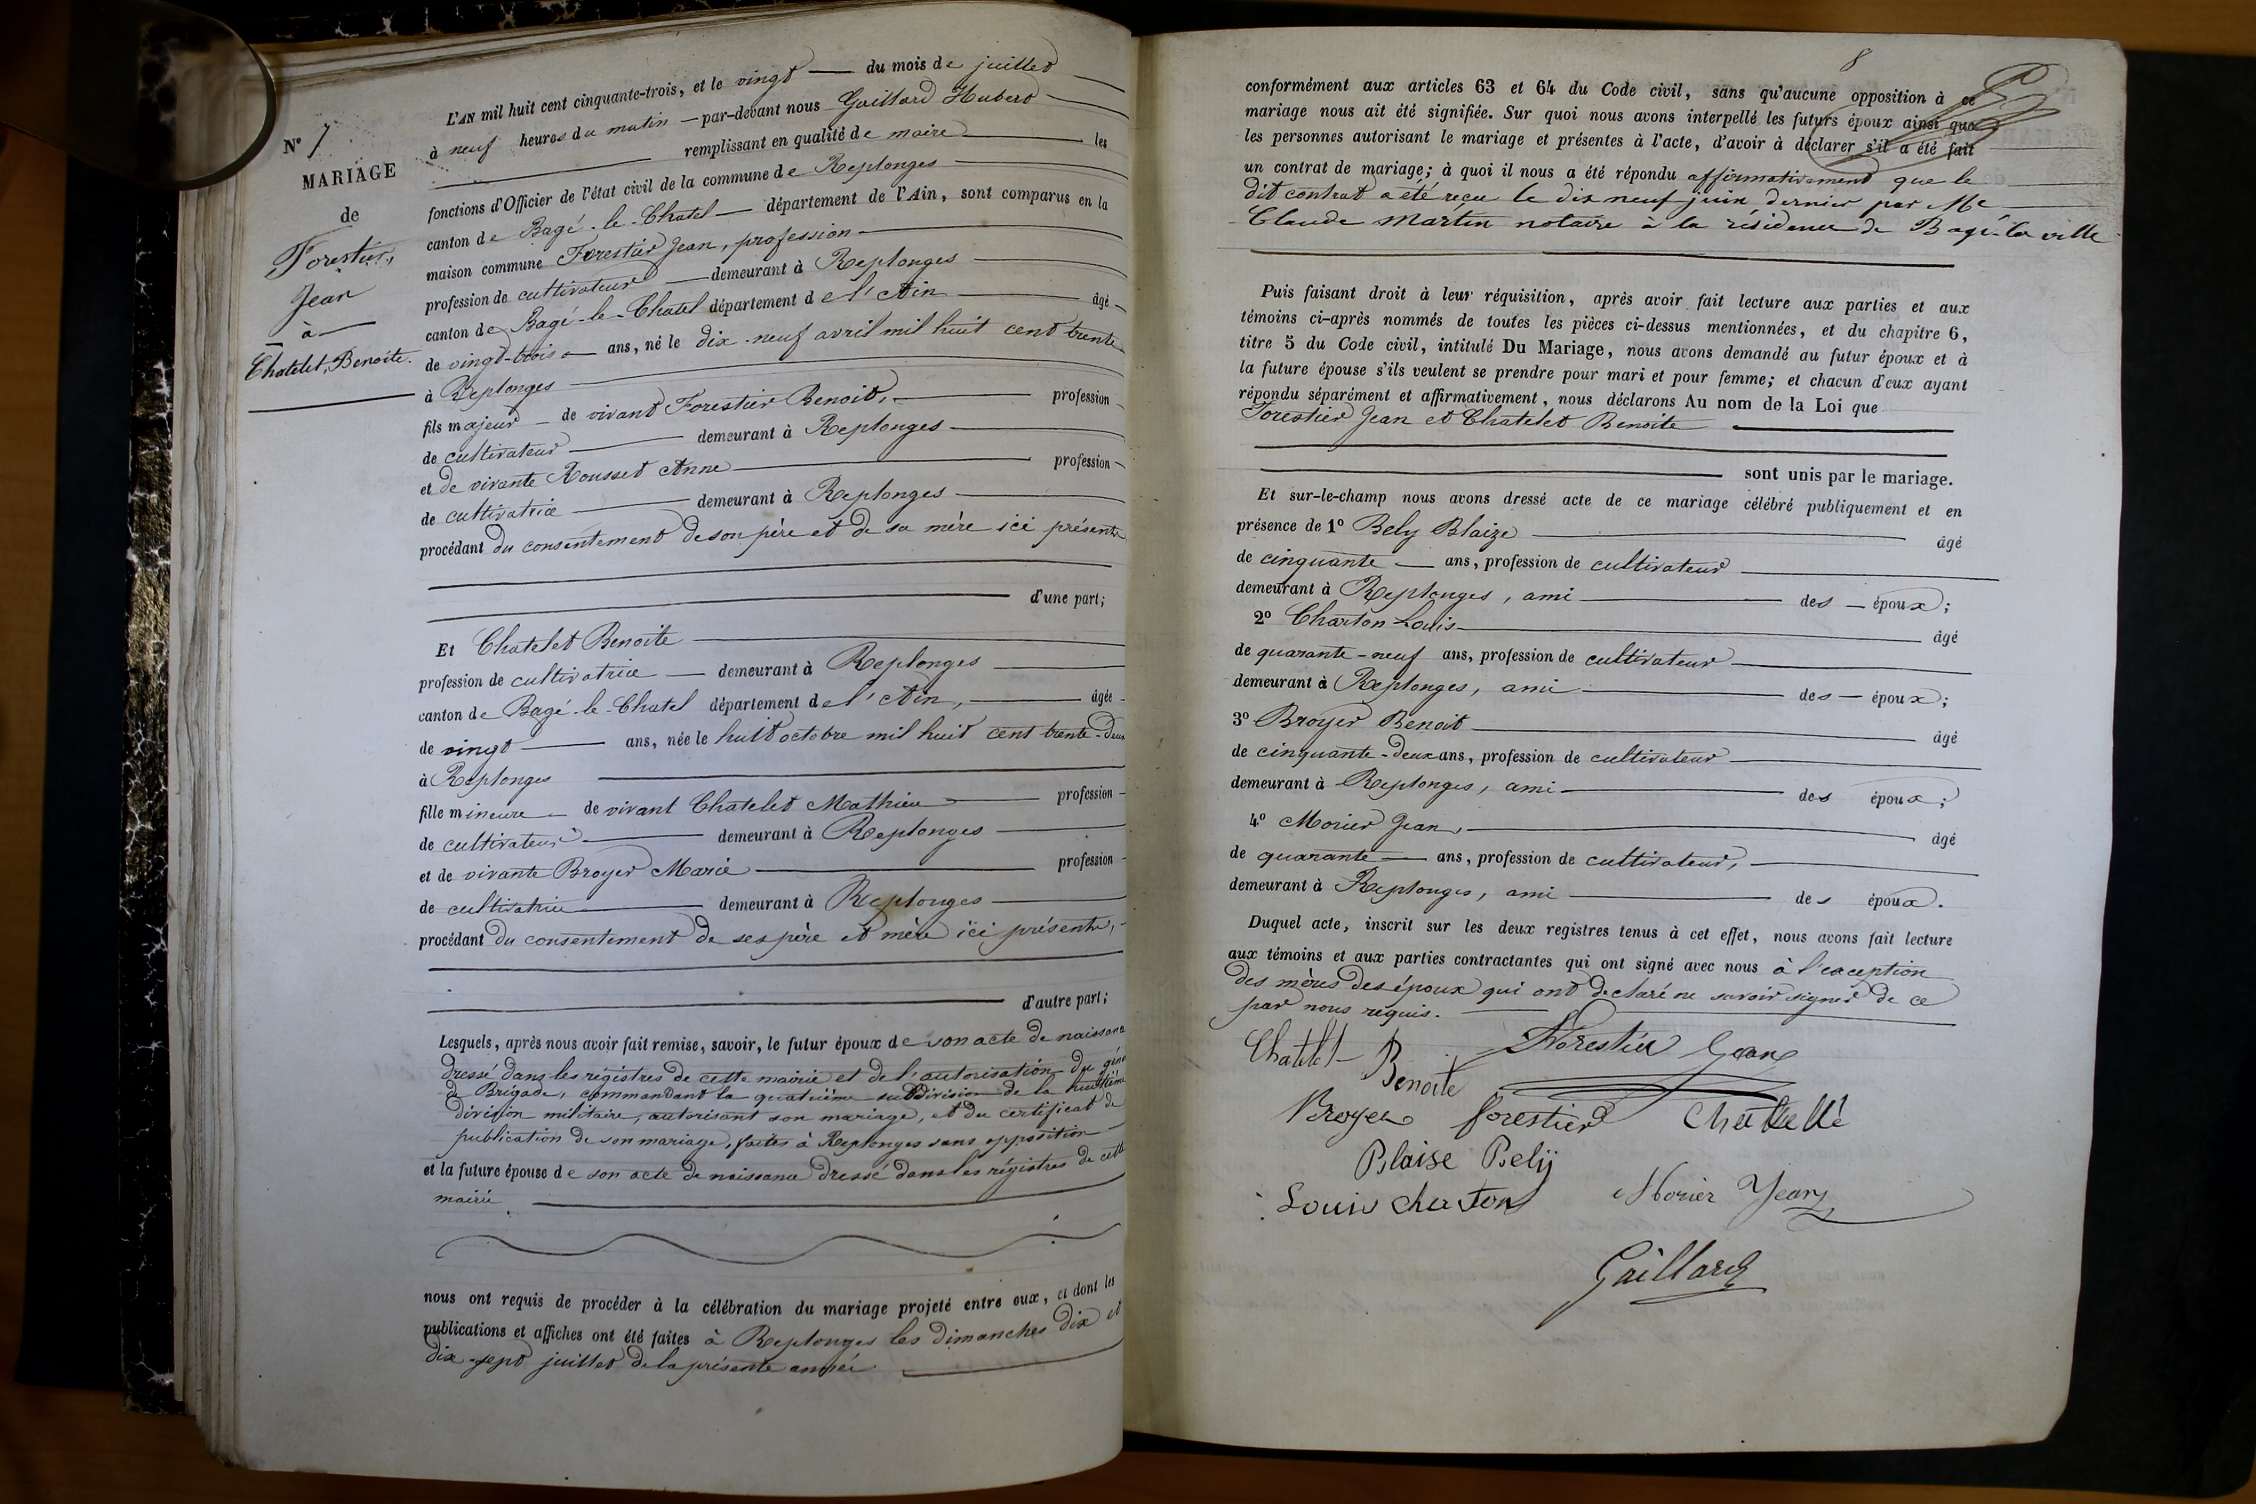 N° 7
MARIAGE
de
Forestier,
Jean
à
Chatelet, Benoite.
L'AN mil huit cent cinquante-trois, et le vingt du mois de juillet
à neuf heures du matin par-devant nous Gaillard Hubert
remplissant en qualité de maire les
fonctions d'Officier de l'état civil de la commune de Replonges
canton de Bagé-le-Chatel département de l'Ain, sont comparus en la
maison commune Forestier Jean, profession
profession de cultivateur demeurant à Replonges
canton de Bagé-le-Chatel département de l'Ain âgé
de vingt-trois ans, né le dix-neuf avril mil huit cent trente
à Replonges
fils majeur de vivant Forestier Benoit, profession
de cultivateur demeurant à Replonges
et de vivante Rousset Anne profession
de cultivatrice demeurant à Replonges
procédant du consentement de son père et de sa mère ici présents
d'une part;
Et Chatelet Benoite
profession de cultivatrice demeurant à Replonges
canton de Bagé-le-Chatel département de l'Ain, âgée
de vingt ans, née le huit octobre mil huit cent trente-deux
à Replonges
fille mineure de vivant Chatelet Mathieu profession
de cultivateur demeurant à Replonges
et de vivante Broyer Marie profession
de cultivatrice demeurant à Replonges
procédant du consentement de ses père et mère ici présents,
d'autre part;
Lesquels, après nous avoir fait remise, savoir, le futur époux de son acte de naissance
dressé dans les régistres de cette mairie et de l'autorisation du géné
de Brigade, commandant la quatrième subdivision de la huitième
division militaire, autorisant son mariage, et du certificat de
publication de son mariage, faites à Replonges sans opposition
et la future épouse de son acte de naissance dressé dans les régistres de cette
mairie
nous ont requis de procéder à la célébration du mariage projeté entre eux, et dont les
publications et affiches ont été faites à Replonges les dimanches dix et
dix-sept juillet de la présente année
8
conformément aux articles 63 et 64 du Code civil, sans qu'aucune opposition à ce
mariage nous ait été signifiée. Sur quoi nous avons interpellé les futurs époux ainsi que
les personnes autorisant le mariage et présentes à l'acte, d'avoir à déclarer s'il a été fait
un contrat de mariage; à quoi il nous a été répondu affirmativement que le
dit contrat a été reçu le dix neuf juin dernier par Me
Claude Martin notaire à la résidence de Bagé-la ville
Puis faisant droit à leur réquisition, après avoir fait lecture aux parties et aux
témoins ci-après nommés de toutes les pièces ci-dessus mentionnées, et du chapitre 6,
titre 5 du Code civil, intitulé Du Mariage, nous avons demandé au futur époux et à
la future épouse s'ils veulent se prendre pour mari et pour femme; et chacun d'eux ayant
répondu séparément et affirmativement, nous déclarons Au nom de la Loi que
Forestier Jean et Chatelet Benoite
sont unis par le mariage.
Et sur-le-champ nous avons dressé acte de ce mariage célébré publiquement et en
présence de 1° Bely Blaize âgé
de cinquante ans, profession de cultivateur
demeurant à Replonges, ami des époux;
2° Charton Louis âgé
de quarante-neuf ans, profession de cultivateur
demeurant à Replonges, ami des époux;
3° Broyer Benoit âgé
de cinquante-deux ans, profession de cultivateur
demeurant à Replonges, ami des époux;
4° Morier Jean, âgé
de quarante ans, profession de cultivateur,
demeurant à Replonges, ami des époux.
Duquel acte, inscrit sur les deux registres tenus à cet effet, nous avons fait lecture
aux témoins et aux parties contractantes qui ont signé avec nous à l'exception
des mères des époux qui ont déclaré ne savoir signer de ce
par nous requis.
Chatelet Benoite Forestier Jean
Broyer forestier Chatellé
Blaise Bely
Louis charton Morier Jean
Gaillard